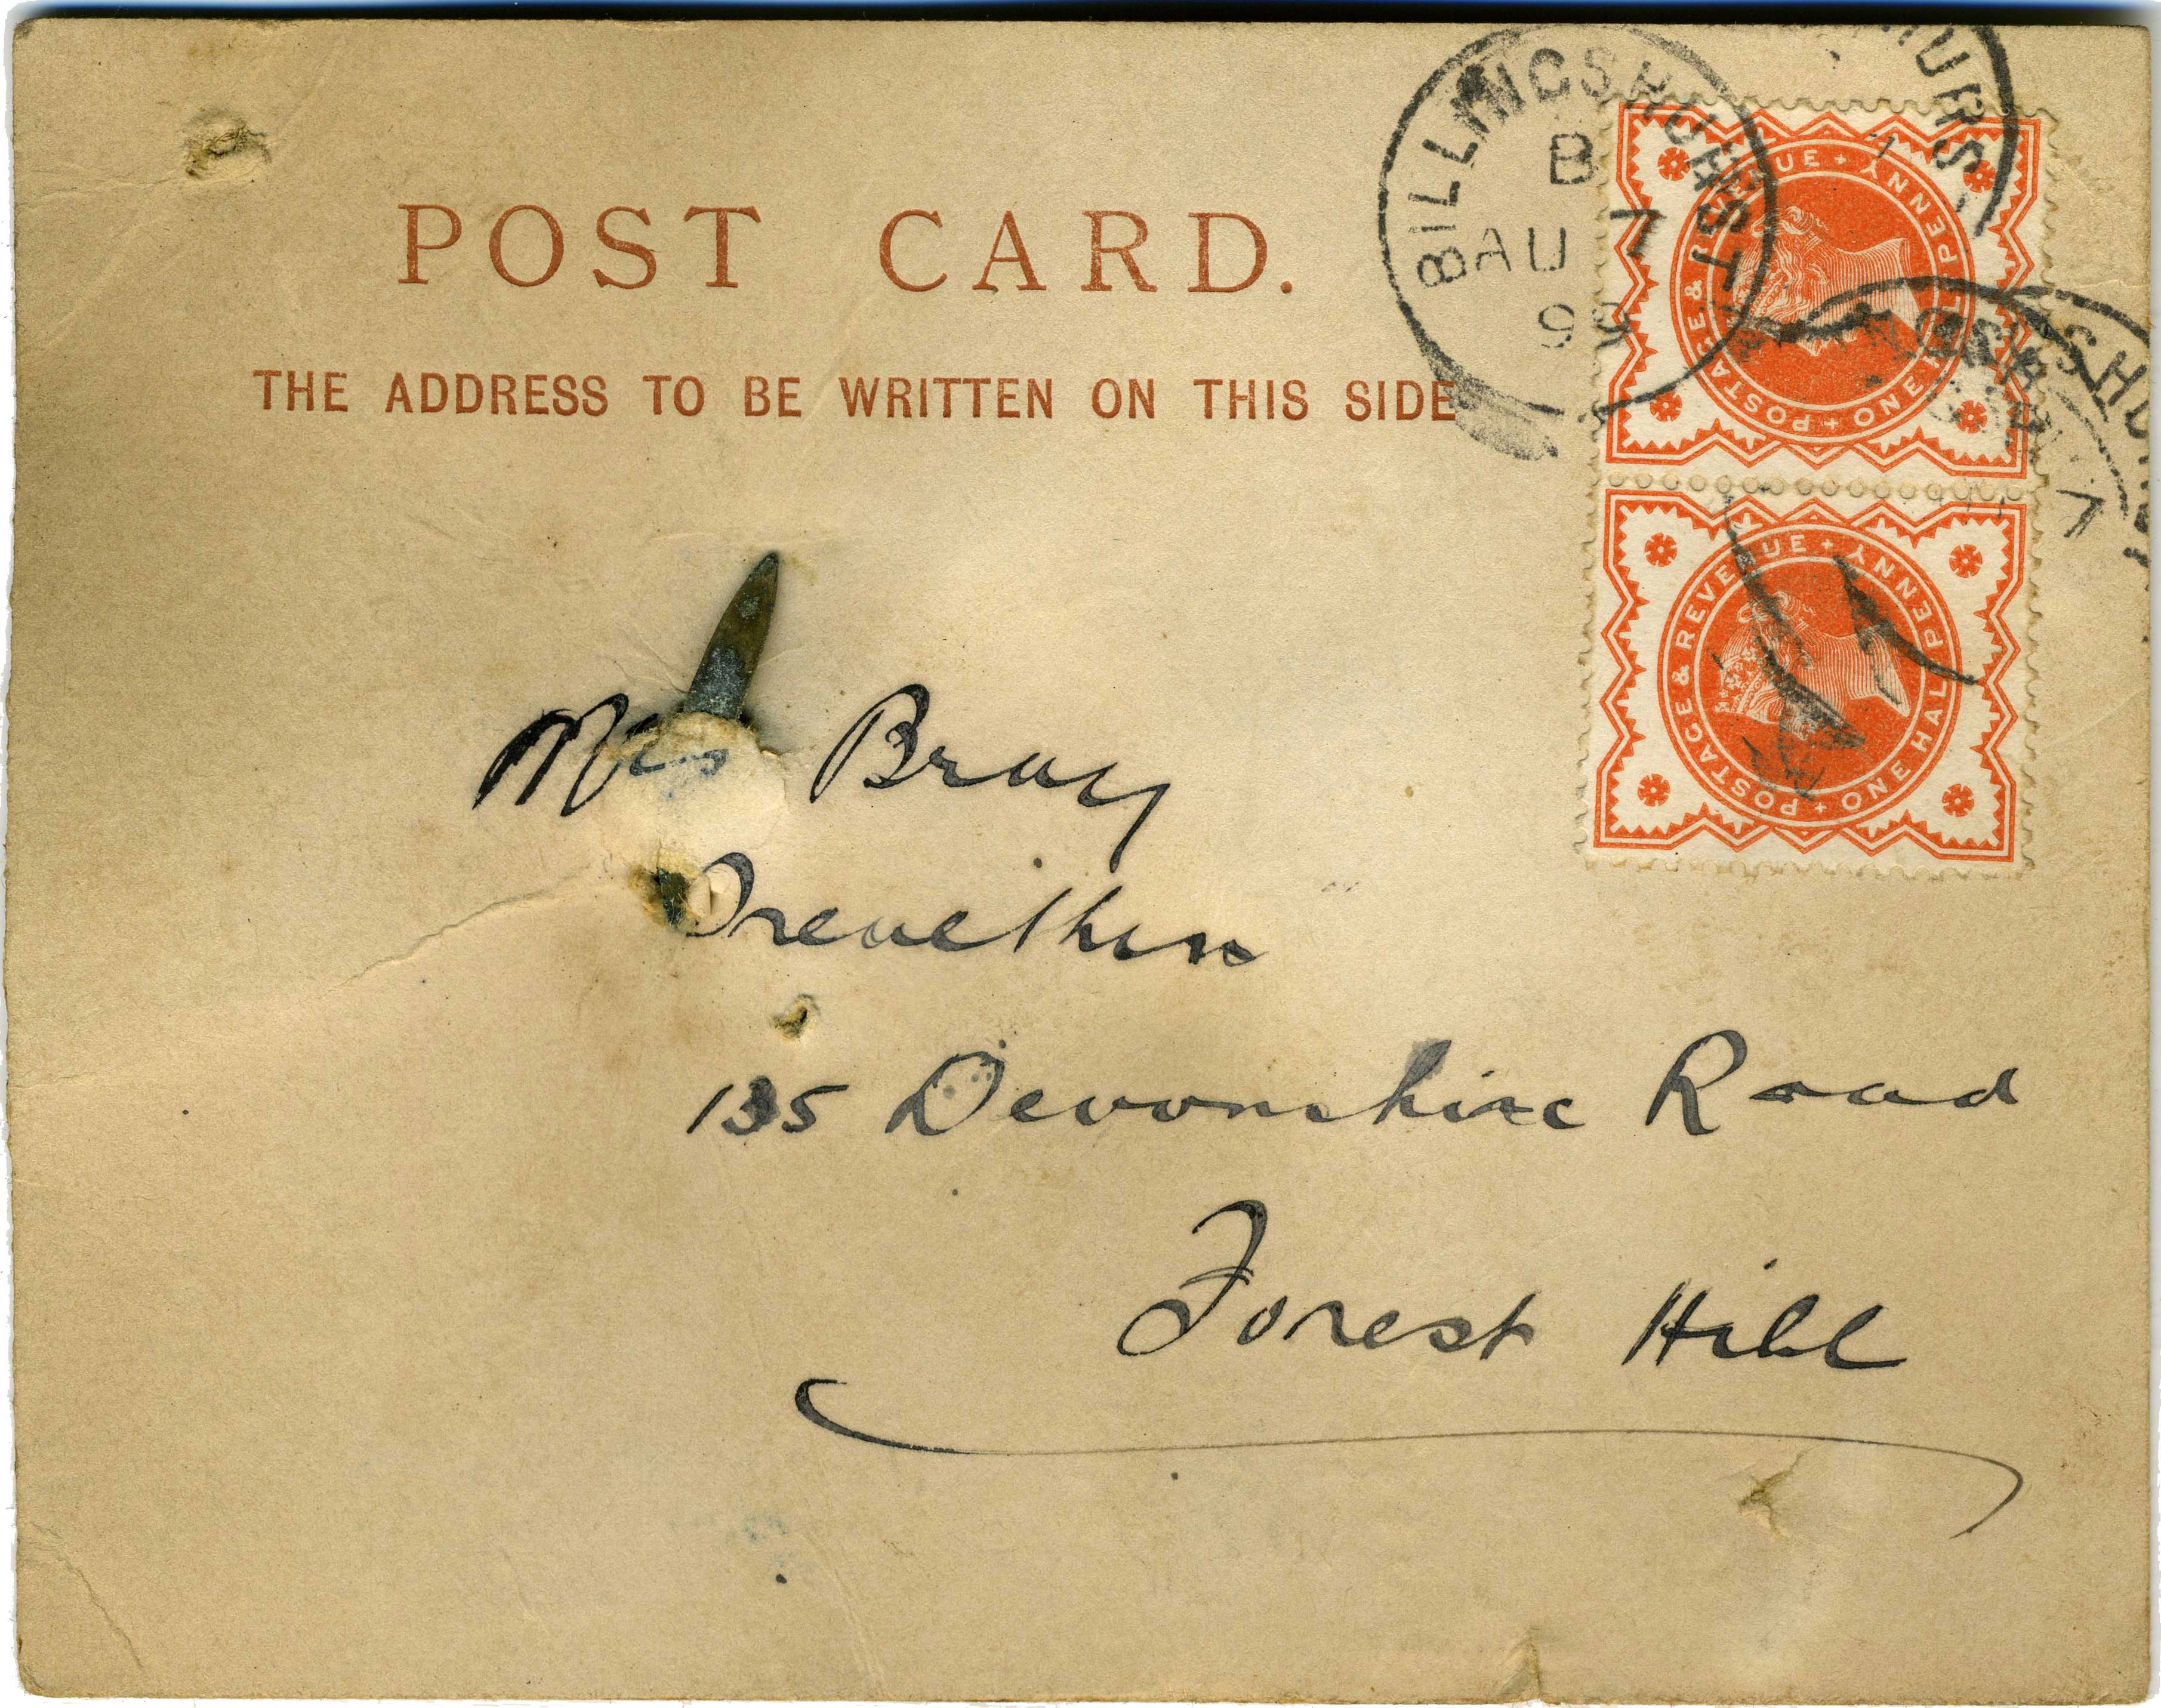 POST CARD.
THE ADDRESS TO BE WRITTEN ON THIS SIDE
BILLINGSHURST
B
AU 7
9
HURS
SHUR
7
POSTAGE & REVENUE + ONE HALF PENNY +
POSTAGE & REVENUE + ONE HALF PENNY +
Mrs Bray
Trevethin
135 Devonshire Road
Forest Hill